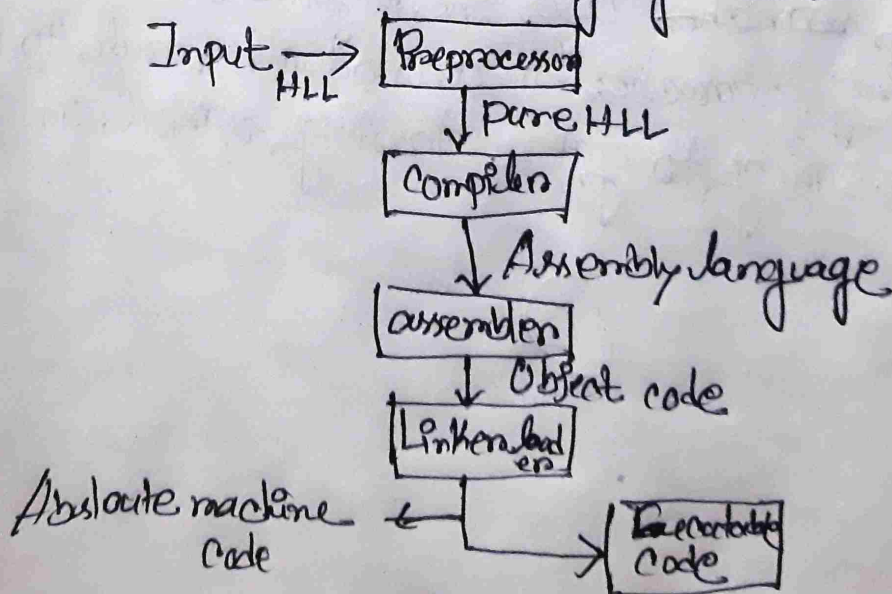 Input
HLL
Preprocessor
Pure HLL
Compiler
Assembly language
assembler
Object code
Linker load
er
Absloute machine
Code
Code